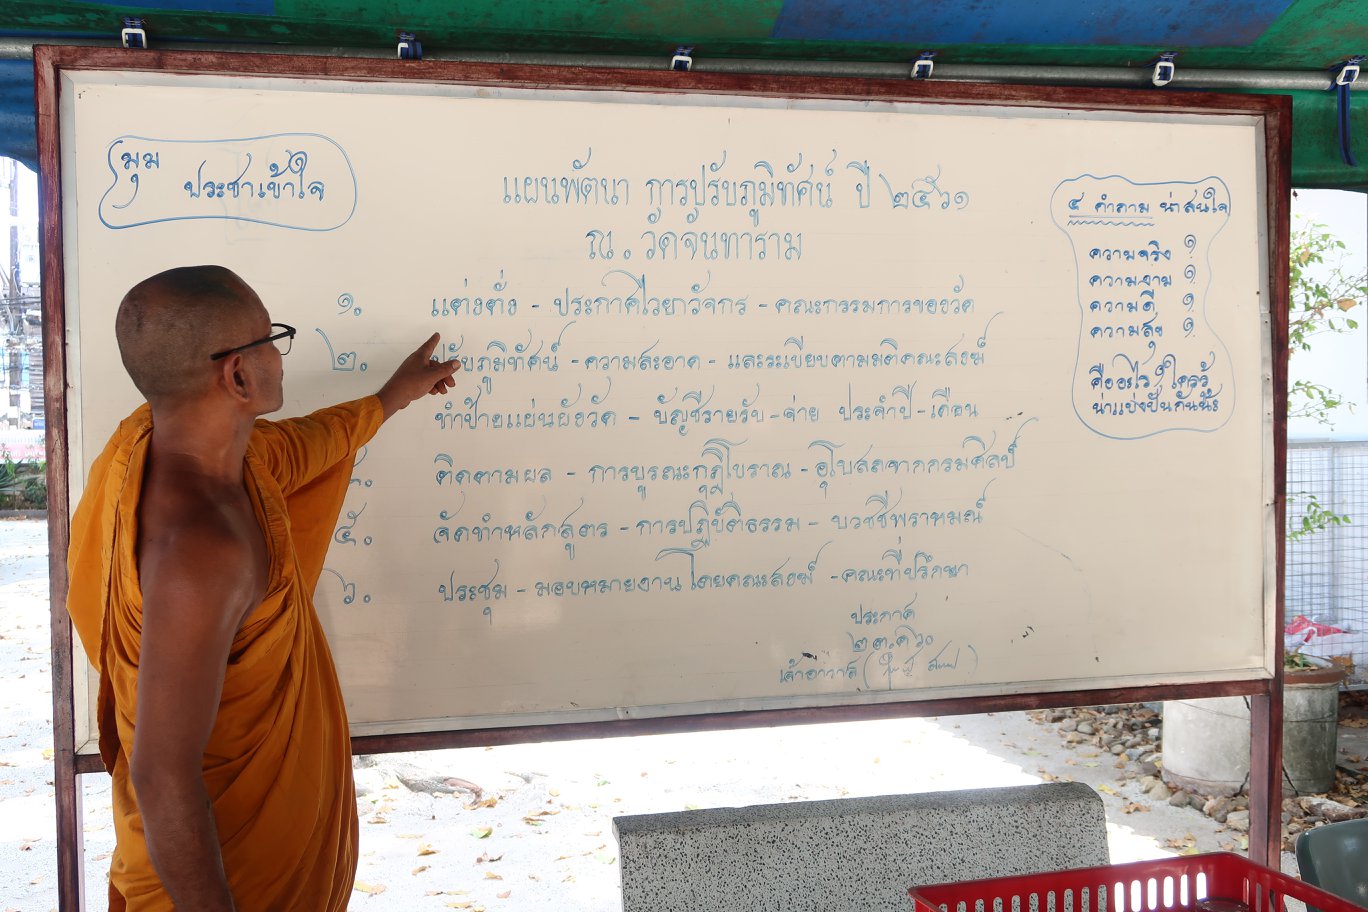 มุม
ประชาเข้าใจ
แผนพัฒนา การปรับภูมิทัศน์ ปี ๒๕๖๑
ณ. วัดจันทาราม
๑. แต่งตั่ง - ประกาศไวยาวัจกร - คณะกรรมการของวัด
๒. ปรับภูมิทัศน์ - ความสะอาด - และระเบียบตามมติคณะสงฆ์
ทำป้ายแผ่นผังวัด - บัญชีรายรับ - จ่าย ประจำปี - เดือน
ติดตามผล - การบูรณะกุฏิโบราณ - อุโบสถจากกรมศิลป์
๕. จัดทำหลักสูตร - การปฏิบัติธรรม - บวชชีพราหมณ์
๖. ประชุม - มอบหมายงานโดยคณะสงฆ์ - คณะที่ปรึกษา
ประกาศ
เจ้าอาวาส
๔ คำถาม น่าสนใจ
ความจริง ?
ความงาม ?
ความดี ?
ความสุข ?
คืออะไร ใครรู้
น่าแบ่งปันกันนะ